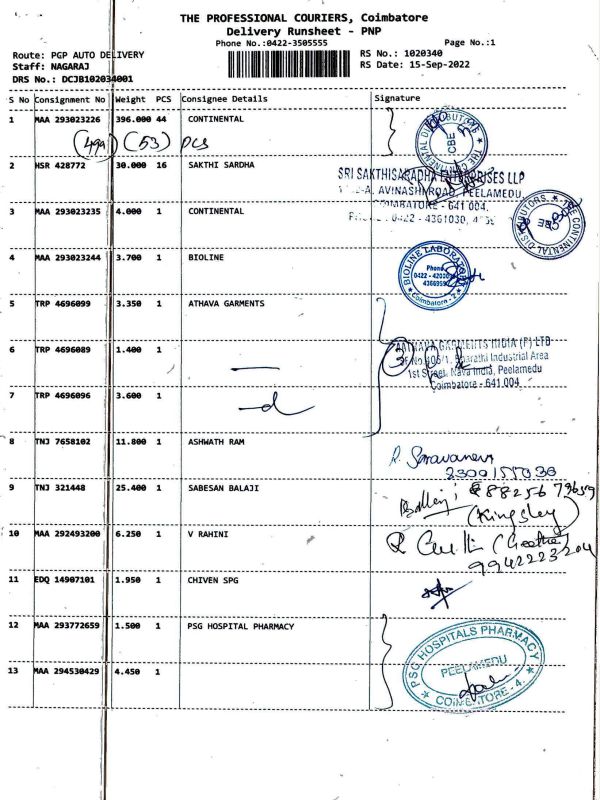 THE PROFESSIONAL COURIERS, Coimbatore
Delivery Runsheet - PNP
Phone No.:0422-3505555
Page No.:1
Route: PGP AUTO DELIVERY
RS No.: 1020340
Staff: NAGARAJ
RS Date: 15-Sep-2022
DRS No.: DCJB102034001
S No Consignment No Weight PCS Consignee Details Signature
1 MAA 293023226 396.000 44 CONTINENTAL
(499) (53) pcs
THE CONTINENTAL DISTRIBUTORS CBE
2 HSR 428772 30.000 16 SAKTHI SARDHA
SRI SAKTHISARADHA ENTERPRISES LLP
AVINASHI ROAD, PEELAMEDU,
COIMBATORE - 641 004.
0422 - 4361030,
3 MAA 293023235 4.000 1 CONTINENTAL
THE CONTINENTAL DISTRIBUTORS. CBE
4 MAA 293023244 3.700 1 BIOLINE
BIOLINE LABORATORY
Phone
Coimbatore - 2
5 TRP 4696099 3.350 1 ATHAVA GARMENTS
6 TRP 4696089 1.400 1
3
GARMENTS INDIA (P) LTD
Bharathi Industrial Area
1st Street, Nava India, Peelamedu
Coimbatore - 641 004
7 TRP 4696096 3.600 1
8 TNJ 7658102 11.800 1 ASHWATH RAM
R. Saravanan
9 TNJ 321448 25.400 1 SABESAN BALAJI
Balaji
(Kingsley)
10 MAA 292493200 6.250 1 V RAHINI
9942223204
11 EDQ 14907101 1.950 1 CHIVEN SPG
12 MAA 293772659 1.500 1 PSG HOSPITAL PHARMACY
PSG HOSPITALS PHARMACY
PEELAMEDU
COIMBATORE - 4.
13 MAA 294530429 4.450 1